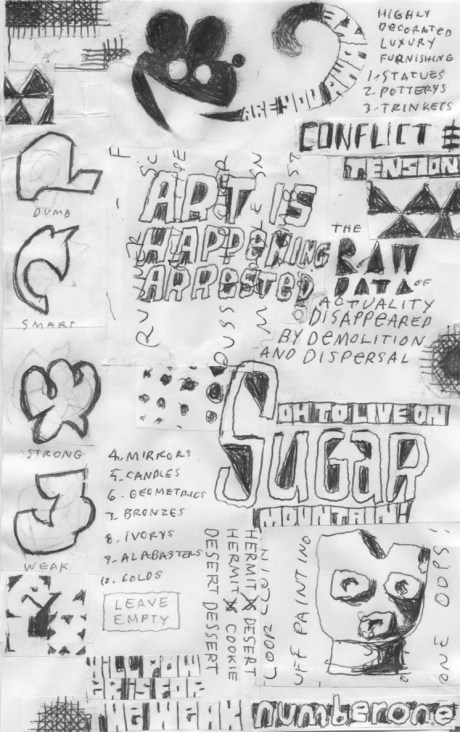 HIGHLY
DECORATED
LUXURY
FURNISHING
1-STATUES
2. POTTERYS
3-TRINKETS
ARE YOU A
CONFLICT &
TENSION
DUMB
SMART
STRONG
WEAK
ART IS
HAPPENING
ARRESTED
THE
RAW
DATA OF
ACTUALITY
DISAPPEARED
BY DEMOLITION
AND DISPERSAL
OH TO LIVE ON
SUGAR
MOUNTAIN!
4. MIRRORS
5. CANDLES
6. GEOMETRICS
7. BRONZES
8. IVORYS
9. ALABASTERS
10. GOLDS
LEAVE
EMPTY
DESERT DESSERT
HERMIT X COOKIE
HERMIT X DESERT
UFF PAINTING
ONE OOPS!
numberone